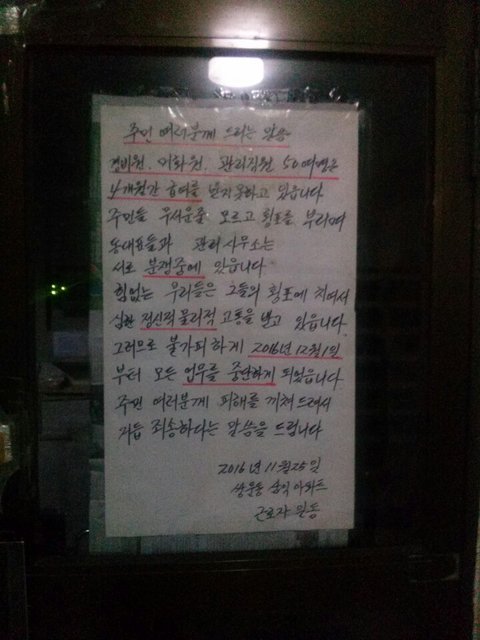 주민 여러분께 드리는 말씀
경비원. 미화원. 관리직원 50여명은
4개월간 급여를 받지못하고 있습니다
주민들 무서운줄 모르고 횡포를 부리며
동대표들과 관리사무소는
서로 분쟁중에 있읍니다
힘없는 우리들은 그들의 횡포에 치여서
심한 정신적 물리적 고통을 받고 있읍니다.
그러므로 불가피하게 2016년 12월 1일
부터 모든 업무를 중단하게 되었읍니다
주민 여러분께 피해를 끼쳐드려서
거듭 죄송하다는 말씀을 드립니다
2016년 11월 25일
삼익아파트
근로자 일동